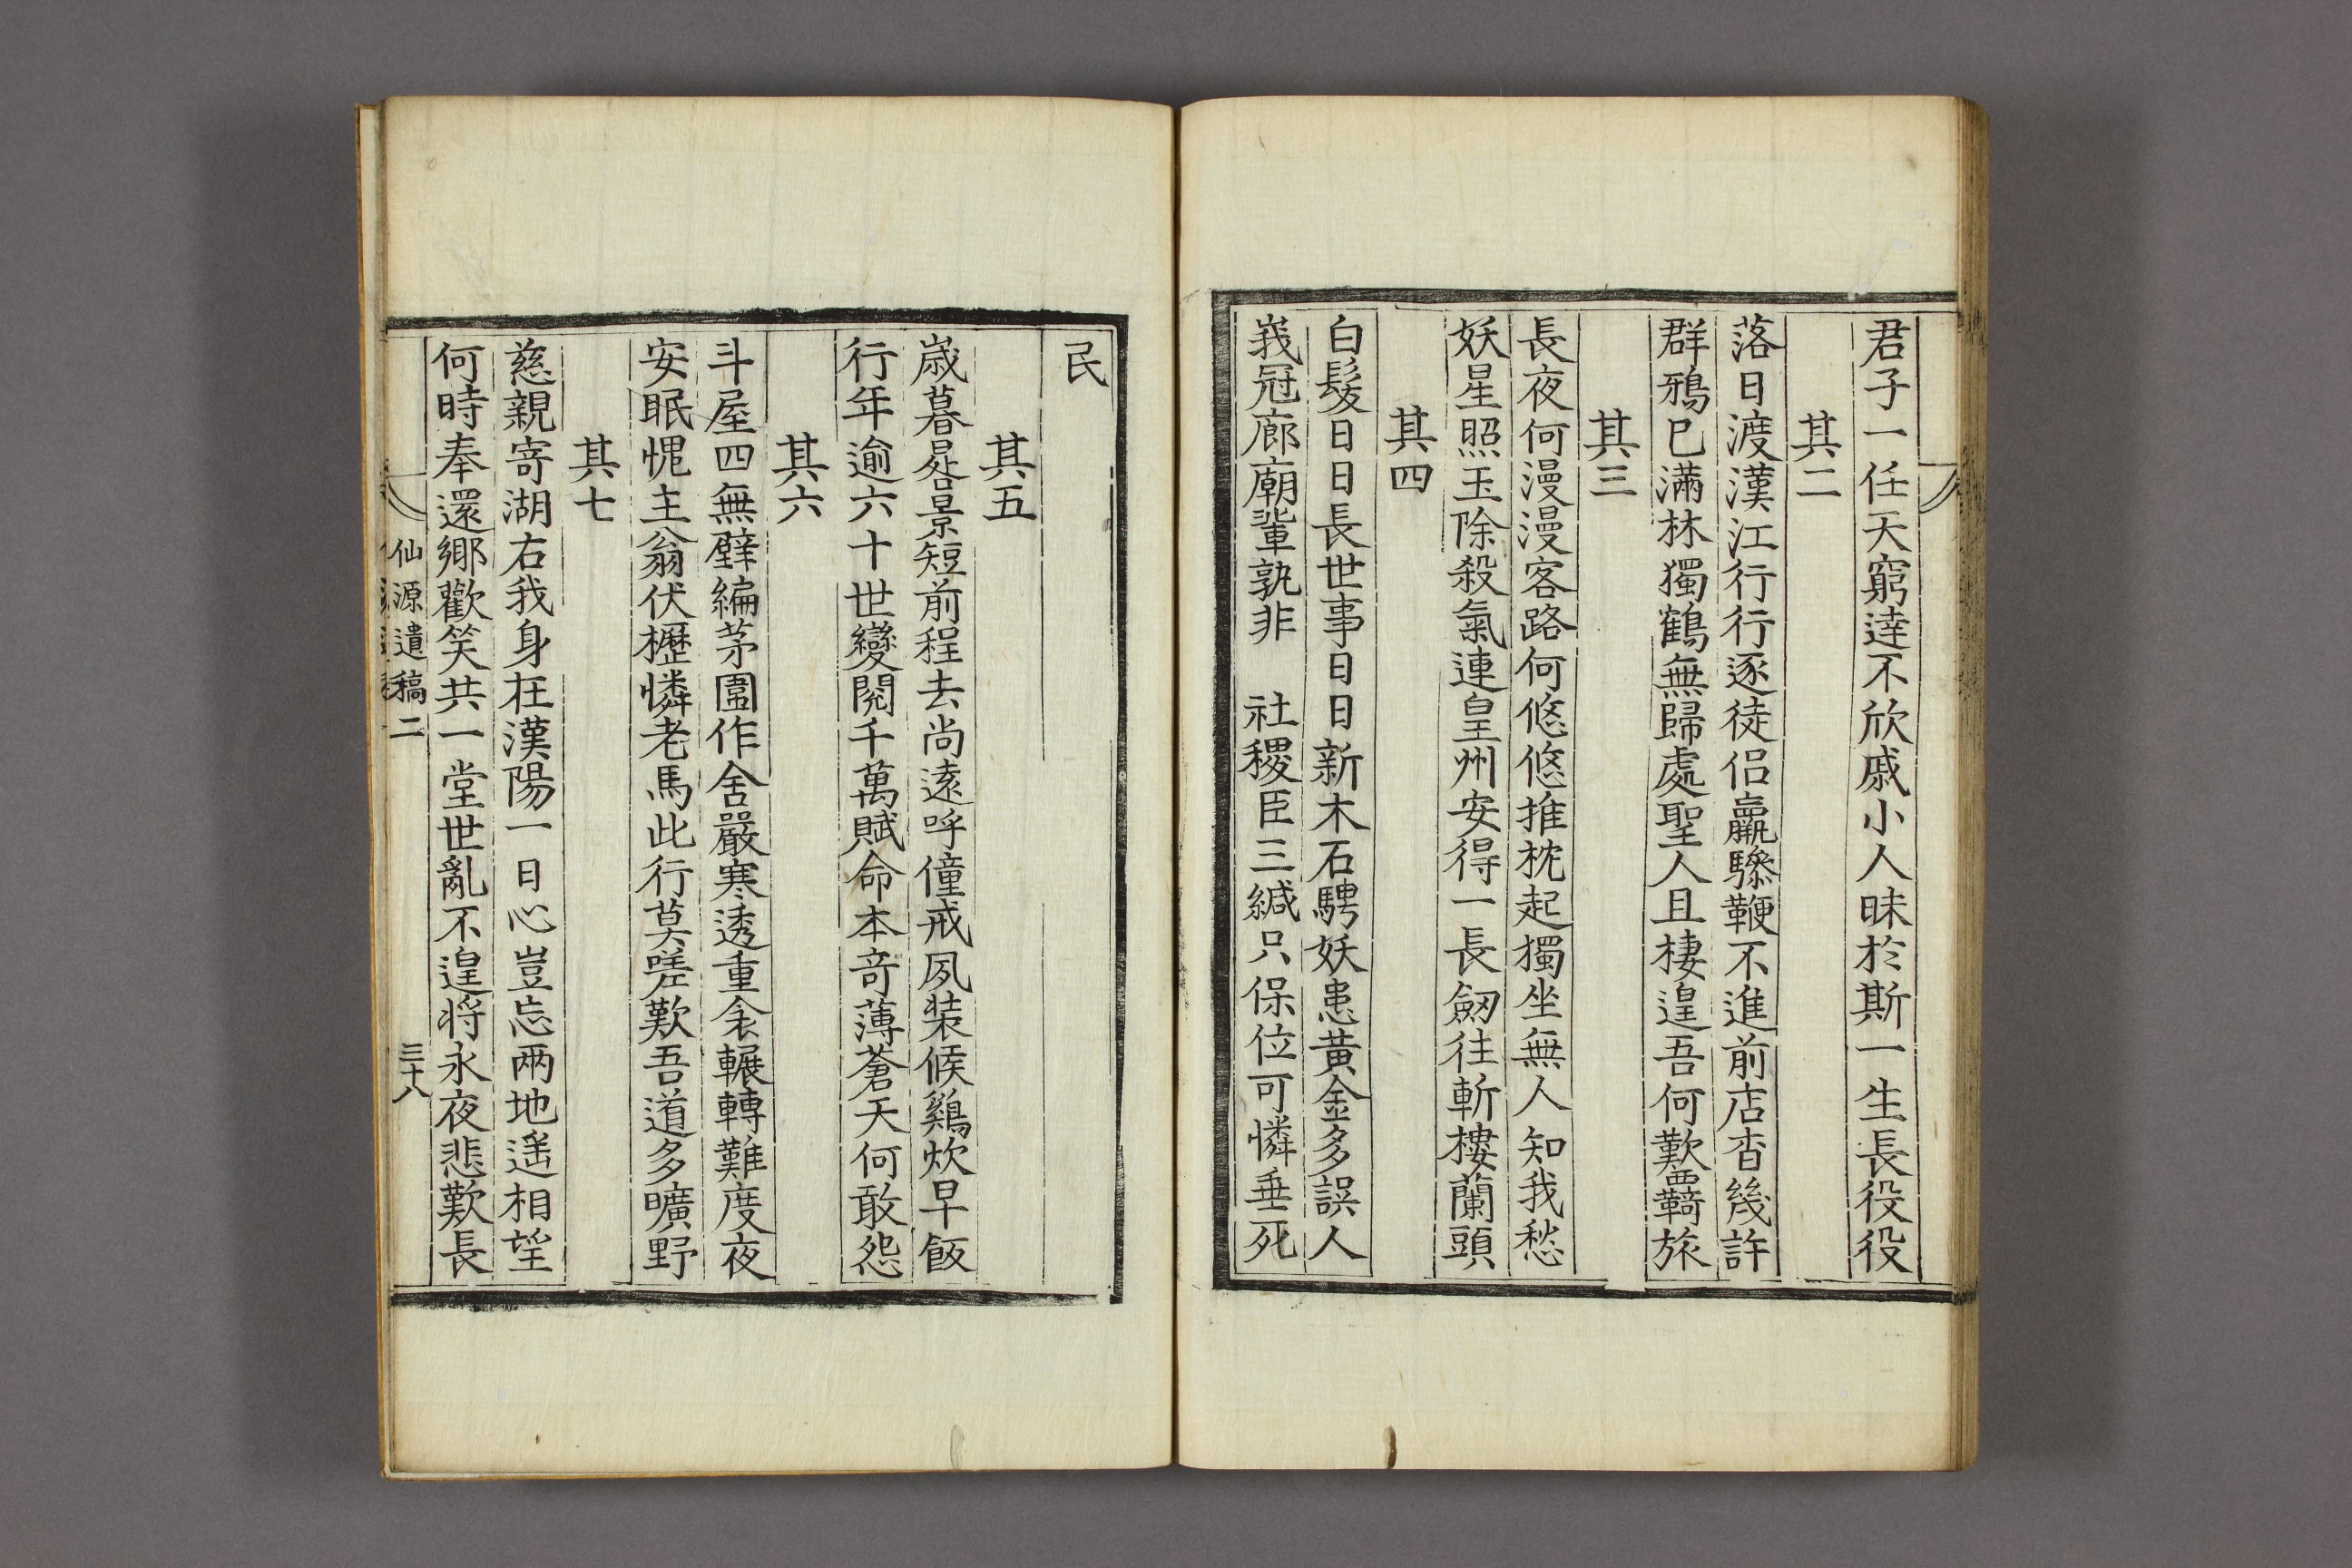 君子一任天窮達不欣戚小人昧於斯一生長役役
其二
落日渡漢江行行逐徒侶羸驂鞭不進前店杳幾許
群鴉已滿林獨鶴無歸處聖人且棲遑吾何歎羈旅
其三
長夜何漫漫客路何悠悠推枕起獨坐無人知我愁
妖星照玉除殺氣連皇州安得一長劒往斬樓蘭頭
其四
白髮日日長世事日日新木石騁妖患黃金多誤人
峩冠廊廟輩孰非 社稷臣三緘只保位可憐垂死
民
其五
歲暮晷景短前程去尚遠呼僮戒夙装候鷄炊早飯
行年逾六十世變閱千萬賦命本奇薄蒼天何敢怨
其六
斗屋四無壁編茅圍作舍嚴寒透重衾輾轉難度夜
安眠愧主翁伏櫪憐老馬此行莫嗟歎吾道多曠野
其七
慈親寄湖右我身在漢陽一日心豈忘兩地遙相望
何時奉還鄉歡笑共一堂世亂不遑将永夜悲歎長
仙源遺稿二
三十八